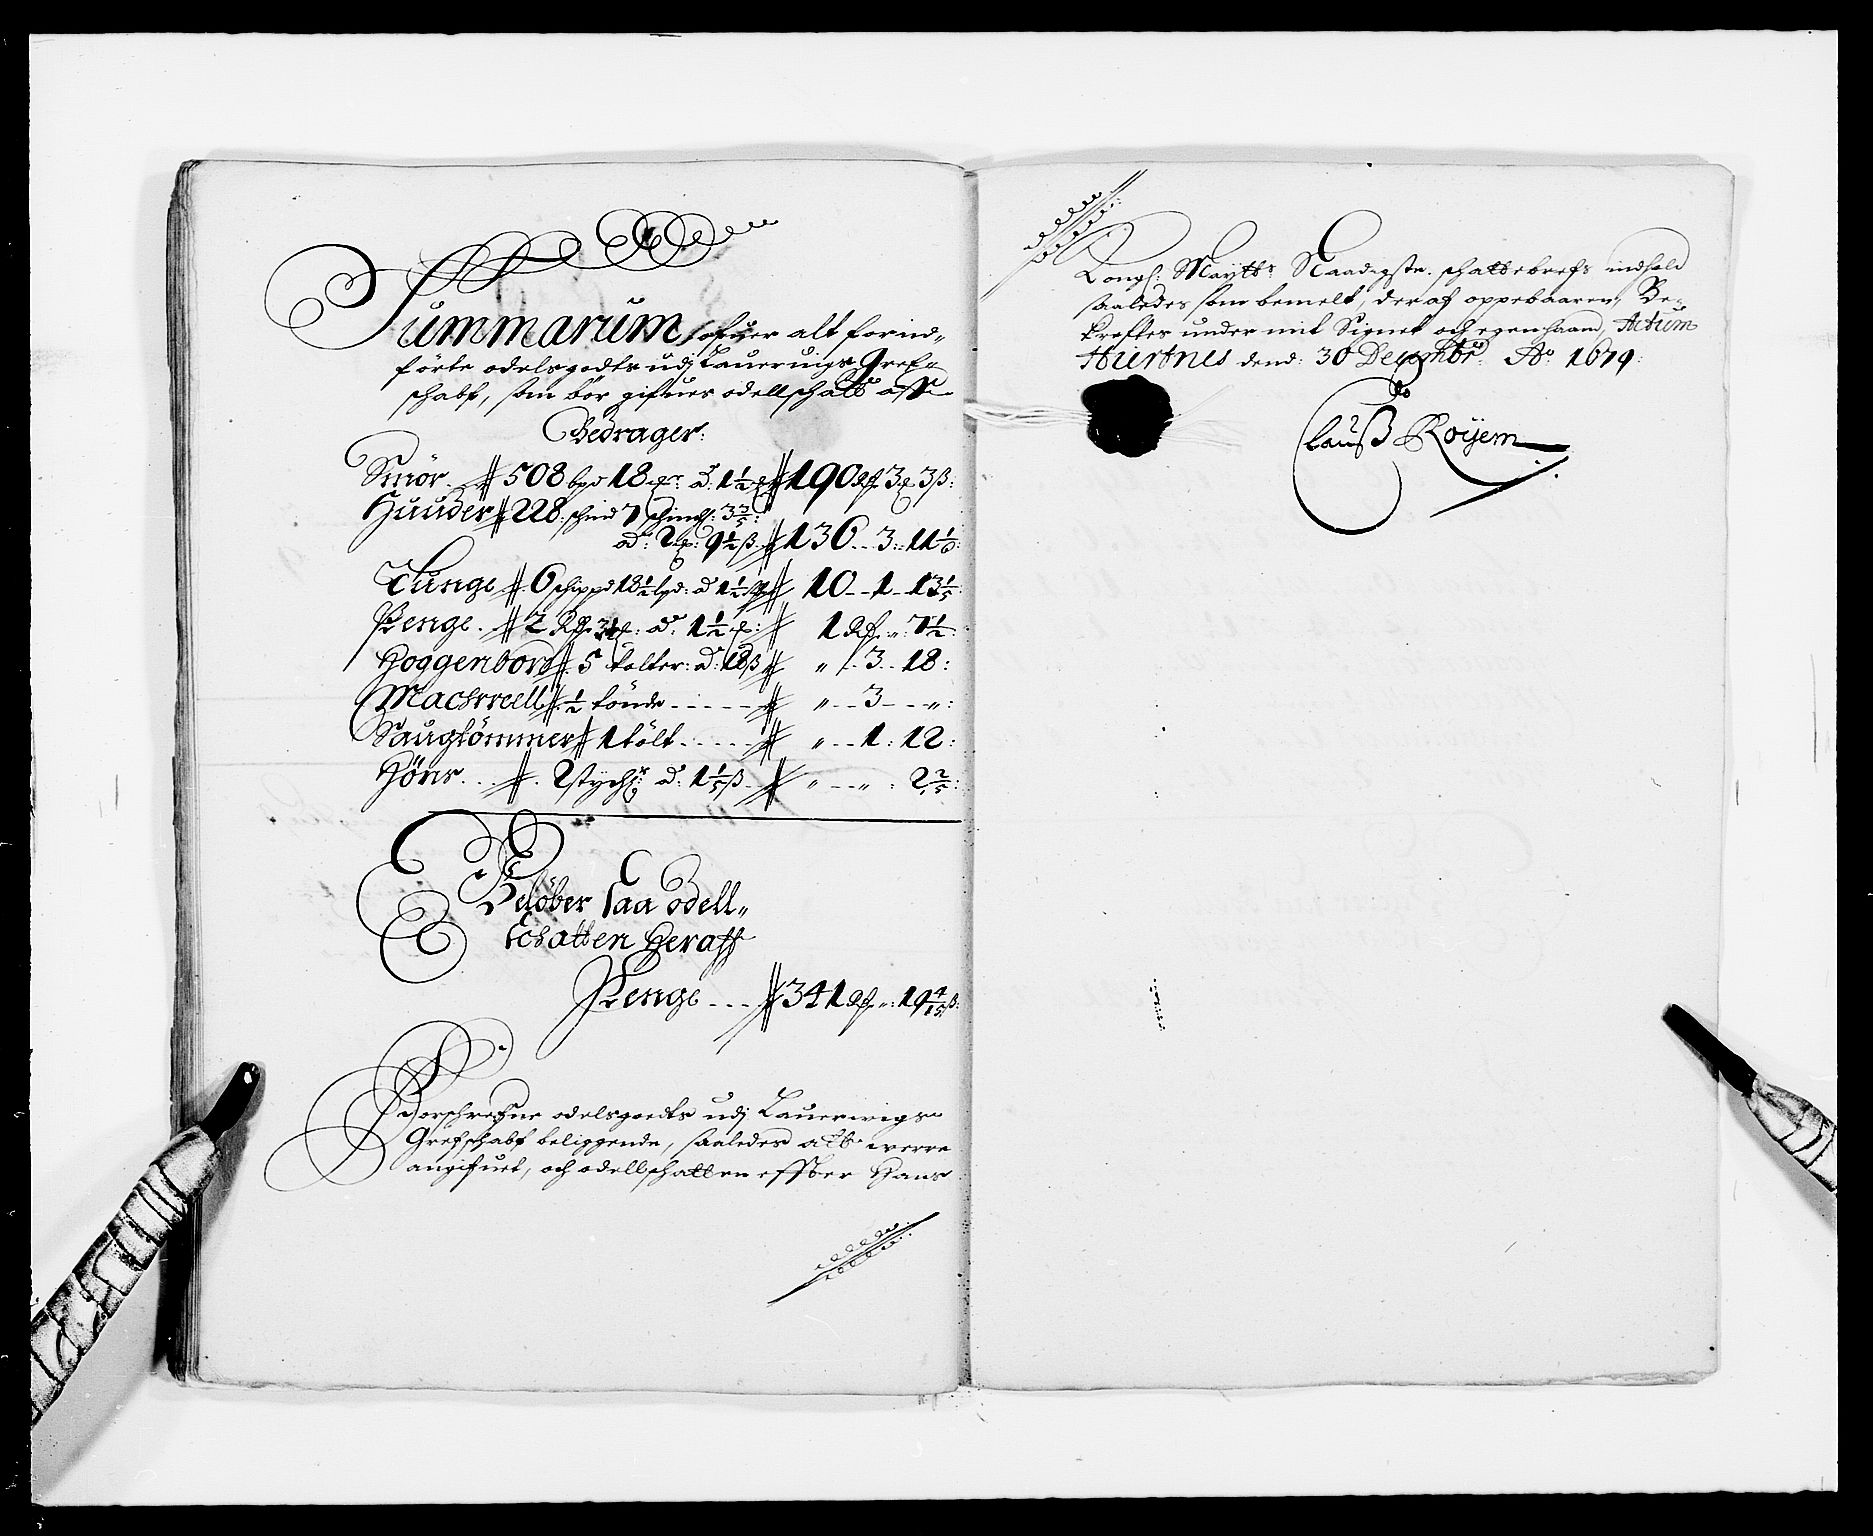 Summarum ofuer alt forind„
förte odelsgodts udj Lauerwigs Gref„
schabf, som bör gifues odellschatt aff
Bedrager:
Smör 508 bpd 18 а 1½ 190 Rdr 3 3 ß:
Huuder 228 schind 7 3⅗:
ad: 2 9½ ß 136 -- 3 : 11⅙:
Tunge 6 schippd 18½ lpd: a 1½ 10 -- 1 -- 13⅕:
Penge 2 Rdr 3 a: 1½ 1 Rdr „: 7½:
Hoggenbord 5 tolter: a: 18 ß „ -- 3 -- 18:
Machreell ½ tönde „ -- 3 -- „:
Saugtömmer 1 tölt „ -- 1 : 12:
Höns 2 stycher a: 1⅕ ß „ -- „ : 2⅖:
Belöber saa odell„
schatten heraff
Penge --- 341 Rdr „: 19 4/15 ß.
Forschrefne odelsgoedts udj Lauerwigs
Grefschabf beliggende, saaledes att werre
angifuet, och odellschatten effter Hans
Kongl: Maytts Naadigste schattebrefs indhold
saaledes som bemelt, deraf oppebaaren, Be„
krefter under mit Signet och egen haand, Actum
Hurtnes dend: 30 Decembr: Ao 1679:
Clauß Röyem